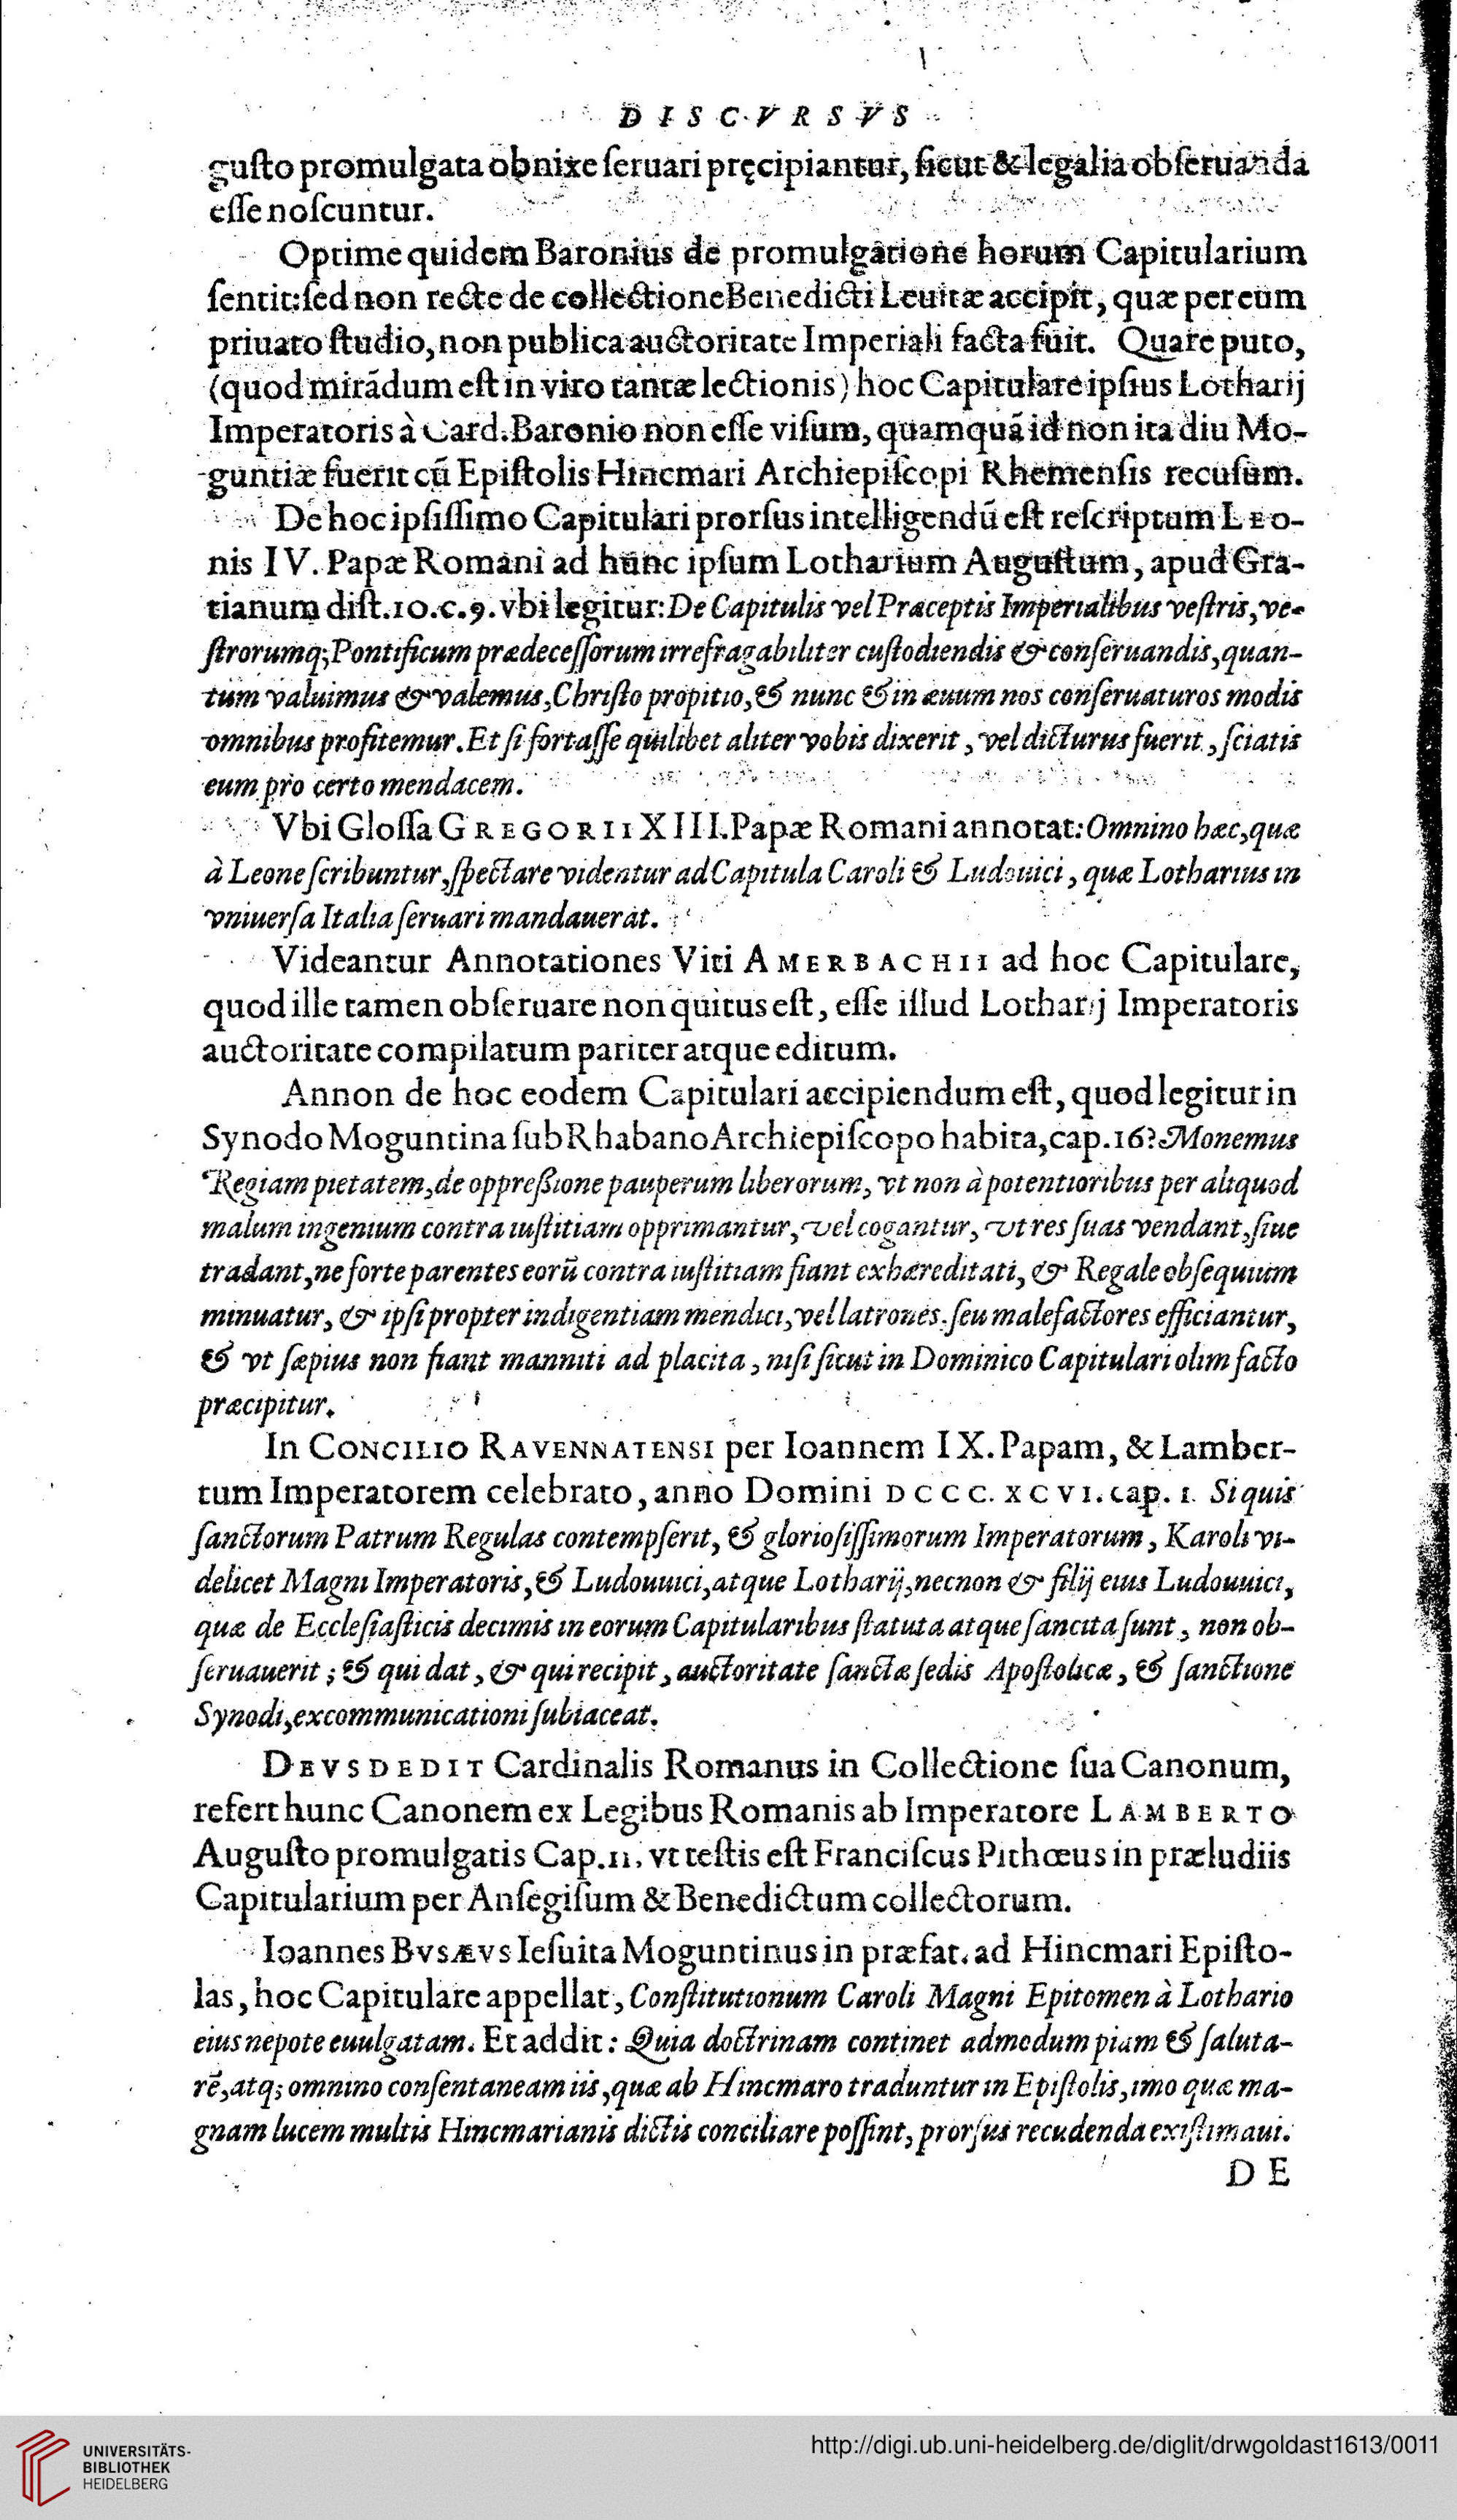 DISCVRSVS
guſto promulgata obnixe ſeruari pręcipiantur, ſicut & legalia obſeruanda
eſſe noſcuntur.
Optime quidem Baronius de promulgatione horum Capitularium
ſentit: ſed non recte de collectione Benedicti Leuitæ accipit, quæ per eum
priuato ſtudio, non publica auctoritate Imperiali facta fuit. Quare puto,
(quod mirādum eſt in viro tantæ lectionis) hoc Capitulare ipſius Lotharij
Imperatoris à Card. Baronio non eſſe viſum, quamquā id non ita diu Mo-
guntiæ fuerit cū Epiſtolis Hincmari Archiepiſcopi Rhemenſis recuſum.
De hoc ipſiſſimo Capitulari prorſus intelligendū eſt reſcriptum LEO-
nis IV. Papæ Romani ad hunc ipſum Lotharium Auguſtum, apud Gra-
tianum diſt. 10. c. 9. vbi legitur: De Capitulis vel Præceptis Imperialibus veſtris, ve-
ſtrorumq; Pontificum prædeceſſorum irrefragabiliter cuſtodiendis & conſeruandis, quan-
tùm valuimus & valemus, Chriſto propitio, & nunc & in æuum nos conſeruaturos modis
omnibus profitemur. Et ſi fortaſſe quilibet aliter vobis dixerit, vel dicturus fuerit, ſciatis
eum pro certo mendacem.
Vbi Gloſſa GREGORII XIII. Papæ Romani annotat: Omnino hæc, quæ
à Leone ſcribuntur, ſpectare videntur ad Capitula Caroli & Ludouici, quæ Lotharius in
vniuerſa Italia ſeruari mandauerat.
Videantur Annotationes Viti AMERBACHII ad hoc Capitulare,
quod ille tamen obſeruare non quitus eſt, eſſe illud Lotharij Imperatoris
auctoritate compilatum pariter atque editum.
Annon de hoc eodem Capitulari accipiendum eſt, quod legitur in
Synodo Moguntina ſub Rhabano Archiepiſcopo habita, cap. 16? Monemus
Regiam pietatem, de oppreßione pauperum liberorum, vt non à potentioribus per aliquod
malum ingenium contra iuſtitiam opprimantur, vel cogantur, vt res ſuas vendant, ſiue
tradant, ne forte parentes eorū contra iuſtitiam fiant exhæreditati, & Regale obſequium
minuatur, & ipſi propter indigentiam mendici, vel latrones. ſeu malefactores efficiantur,
& vt ſæpius non fiant manniti ad placita, niſi ſicut in Dominico Capitulari olim facto
præcipitur.
In CONCILIO RAVENNATENSI per Ioannem IX. Papam, & Lamber-
tum Imperatorem celebrato, anno Domini DCCC. XCVI. cap. 1. Si quis
ſanctorum Patrum Regulas contempſerit, & glorioſiſſimorum Imperatorum, Karoli vi-
delicet Magni Imperatoris, & Ludouuici, atque Lotharij, necnon & filij eius Ludouuici,
quæ de Eccleſiaſticis decimis in eorum Capitularibus ſtatuta atque ſancita ſunt, non ob-
ſeruauerit; & qui dat, & qui recipit, auctoritate ſanctæ ſedis Apoſtolicæ, & ſanctione
Synodi, excommunicationi ſubiaceat.
DEVSDEDIT Cardinalis Romanus in Collectione ſua Canonum,
refert hunc Canonem ex Legibus Romanis ab Imperatore LAMBERTO
Auguſto promulgatis Cap. 11. vt teſtis eſt Franciſcus Pithœus in præludiis
Capitularium per Anſegiſum & Benedictum collectorum.
Ioannes BVSÆVS Ieſuita Moguntinus in præfat. ad Hincmari Epiſto-
las, hoc Capitulare appellat, Conſtitutionum Caroli Magni Epitomen à Lothario
eius nepote euulgatam. Et addit: Quia doctrinam continet admodum piam & ſaluta-
rē, atq; omnino conſentaneam iis, quæ ab Hincmaro traduntur in Epiſtolis, imo quæ ma-
gnam lucem multis Hincmarianis dictis conciliare poſſint, prorſus recudenda exiſtimaui.
DE
UNIVERSITÄTS-
BIBLIOTHEK
HEIDELBERG
http://digi.ub.uni-heidelberg.de/diglit/drwgoldast1613/0011